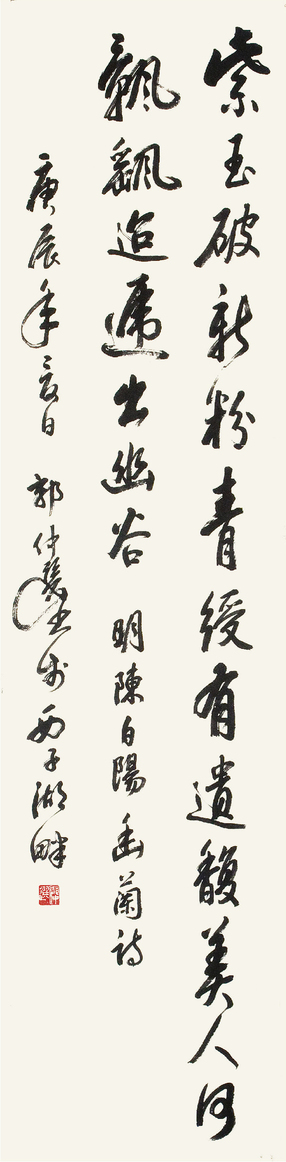 紫玉破新粉青綬有遺馥美人何
飄飖迨遞出幽谷 明陳白陽幽蘭詩
庚辰年夏日 郭仲選書於西子湖畔